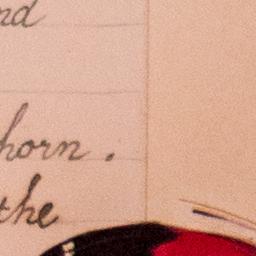 nd
horn.
the